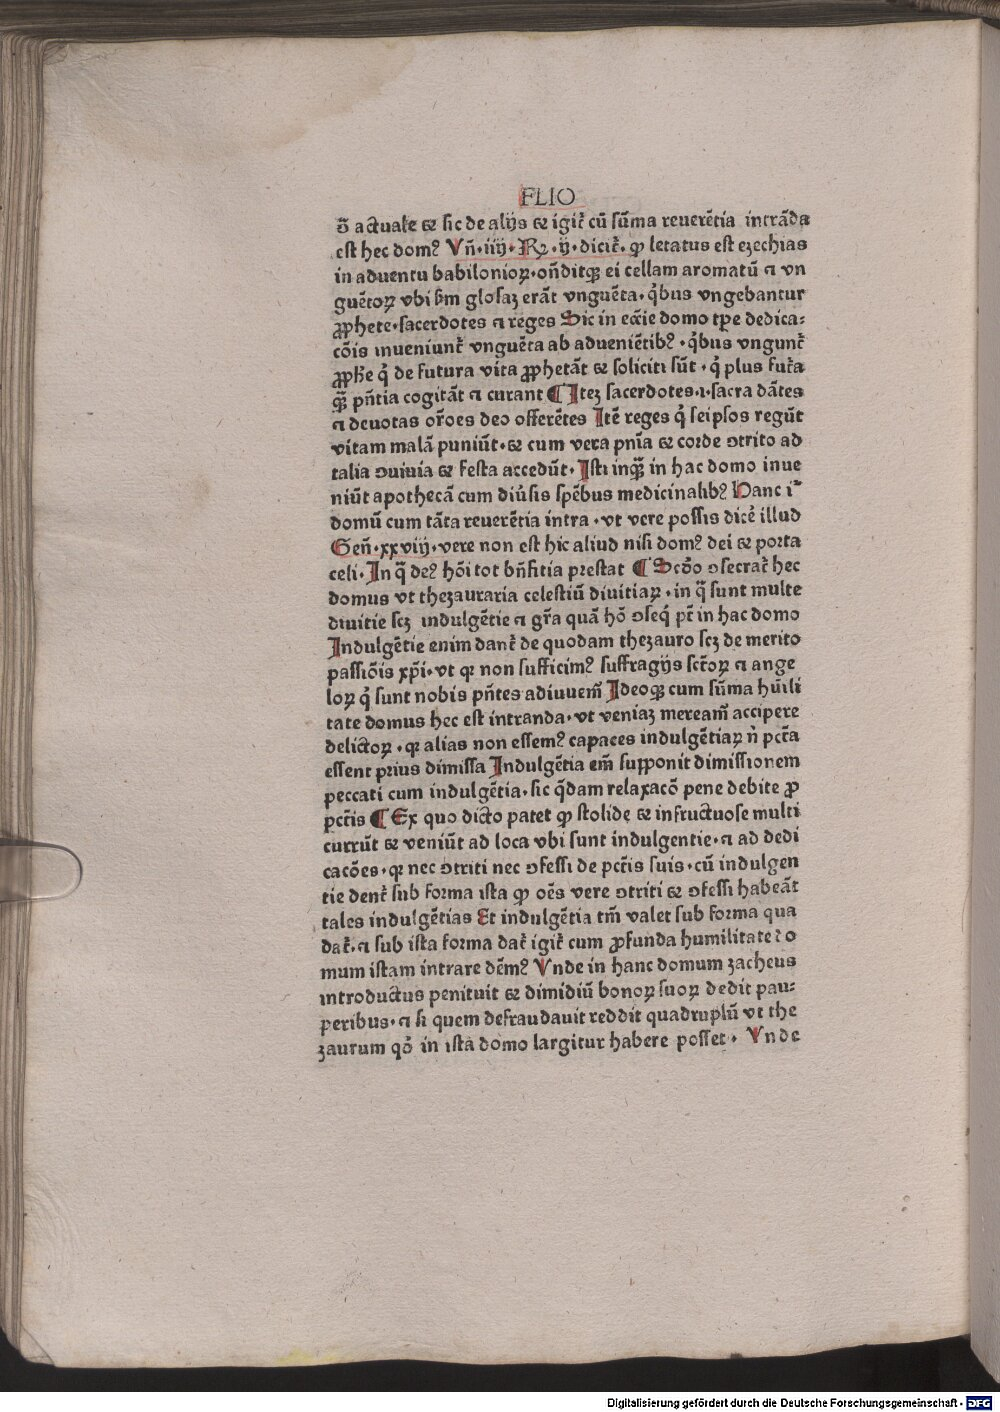 FLIO
ꝟ̄ actuale ⁊ sic de alijs ⁊ igit᷑ cū sūma reuerētia intrāda
est hec domꝰ Vn̄·iiij·Rꝝ·ij·dicit᷑·ꝙ letatus est ezechias
in aduentu babilonioꝝ·on̄ditqꝫ ei cellam aromatū ⁊ vn
guētoꝝ vbi ẜm glosaꝫ erāt vnguēta·q̇bus vngebantur
ꝓphete·sacerdotes ⁊ reges Sic in ecc̄ie domo tp̄e dedica⸗
cōis inueniunt᷑ vnguēta ab adueniētibꝰ·q̇bus vngunt᷑
ꝓph̄e q̇ de futura vita ꝓphetāt ⁊ soliciti sūt·q̇ plus fut᷑a
qꝫ̄ pn̄tia cogitāt ⁊ curant ¶ Iteꝫ sacerdotes·i·sacra dātes
⁊ deuotas or̄oes deo offerētes Itē reges q̇ seipsos regūt
vitam malā puniūt·⁊ cum vera pn̄ia ⁊ corde ↄtrito ad
talia ↄuiuia ⁊ festa accedūt·Isti inqꝫ̄ in hac domo inue
niūt apothecā cum diūsis spēbus medicinalibꝰ Hanc i⁊̄
domū cum tāta reuerētia intra·vt vere possis dic̄e illud
Gen̄·xxviij·vere non est hic aliud nisi domꝰ dei ⁊ porta
celi·In q̄ deꝰ hōi tot bn̄fitia prestat ¶ Scōo ↄsecrat᷑ hec
domus vt thezauraria celestiū diuitiaꝝ·in q̄ sunt multe
diuitie scꝫ indulgētie ⁊ gr̄a quā hō ↄseq̇ pt̄ in hac domo
Indulgētie enim dant᷑ de quodam thezauro scꝫ de merito
passiōis xp̄i·vt qꝛ non sufficimꝰ suffragijs sct̄oꝝ ⁊ ange
loꝝ q̇ sunt nobis pn̄tes adiuuem̄ Ideoqꝫ cum sūma hūili
tate domus hec est intranda·vt veniaꝫ meream̄ accipere
delictoꝝ·qꝛ alias non essemꝰ capaces indulgētiaꝝ n̄ pcc̄a
essent prius dimissa Indulgētia em̄ supponit dimissionem
peccati cum indulgētia·sic q̄dam relaxacō pene debite ꝓ
pcc̄tis ¶ Ex quo dicto patet ꝙ stolide ⁊ infructuose multi
currūt ⁊ veniūt ad loca vbi sunt indulgentie·⁊ ad dedi
cacōes·qꝛ nec ↄtriti nec ↄfessi de pcc̄tis suis·cū indulgen
tie dent᷑ sub forma ista ꝙ oēs vere ↄtriti ⁊ ↄfessi habeāt
tales indulgētias Et indulgētia tm̄ valet sub forma qua
dat᷑·⁊ sub ista forma dat᷑ igit᷑ cum ꝓfunda humilitate do
mum istam intrare dēmꝰ Vnde in hanc domum zacheus
introductus penituit ⁊ dimidiū bonoꝝ suoꝝ dedit pau⸗
peribus·⁊ si quem defraudauit reddit quadruplū vt the
zaurum qō in ista domo largitur habere posset· Vnde
Digitalisierung gefördert durch die Deutsche Forschungsgemeinschaft - DFG